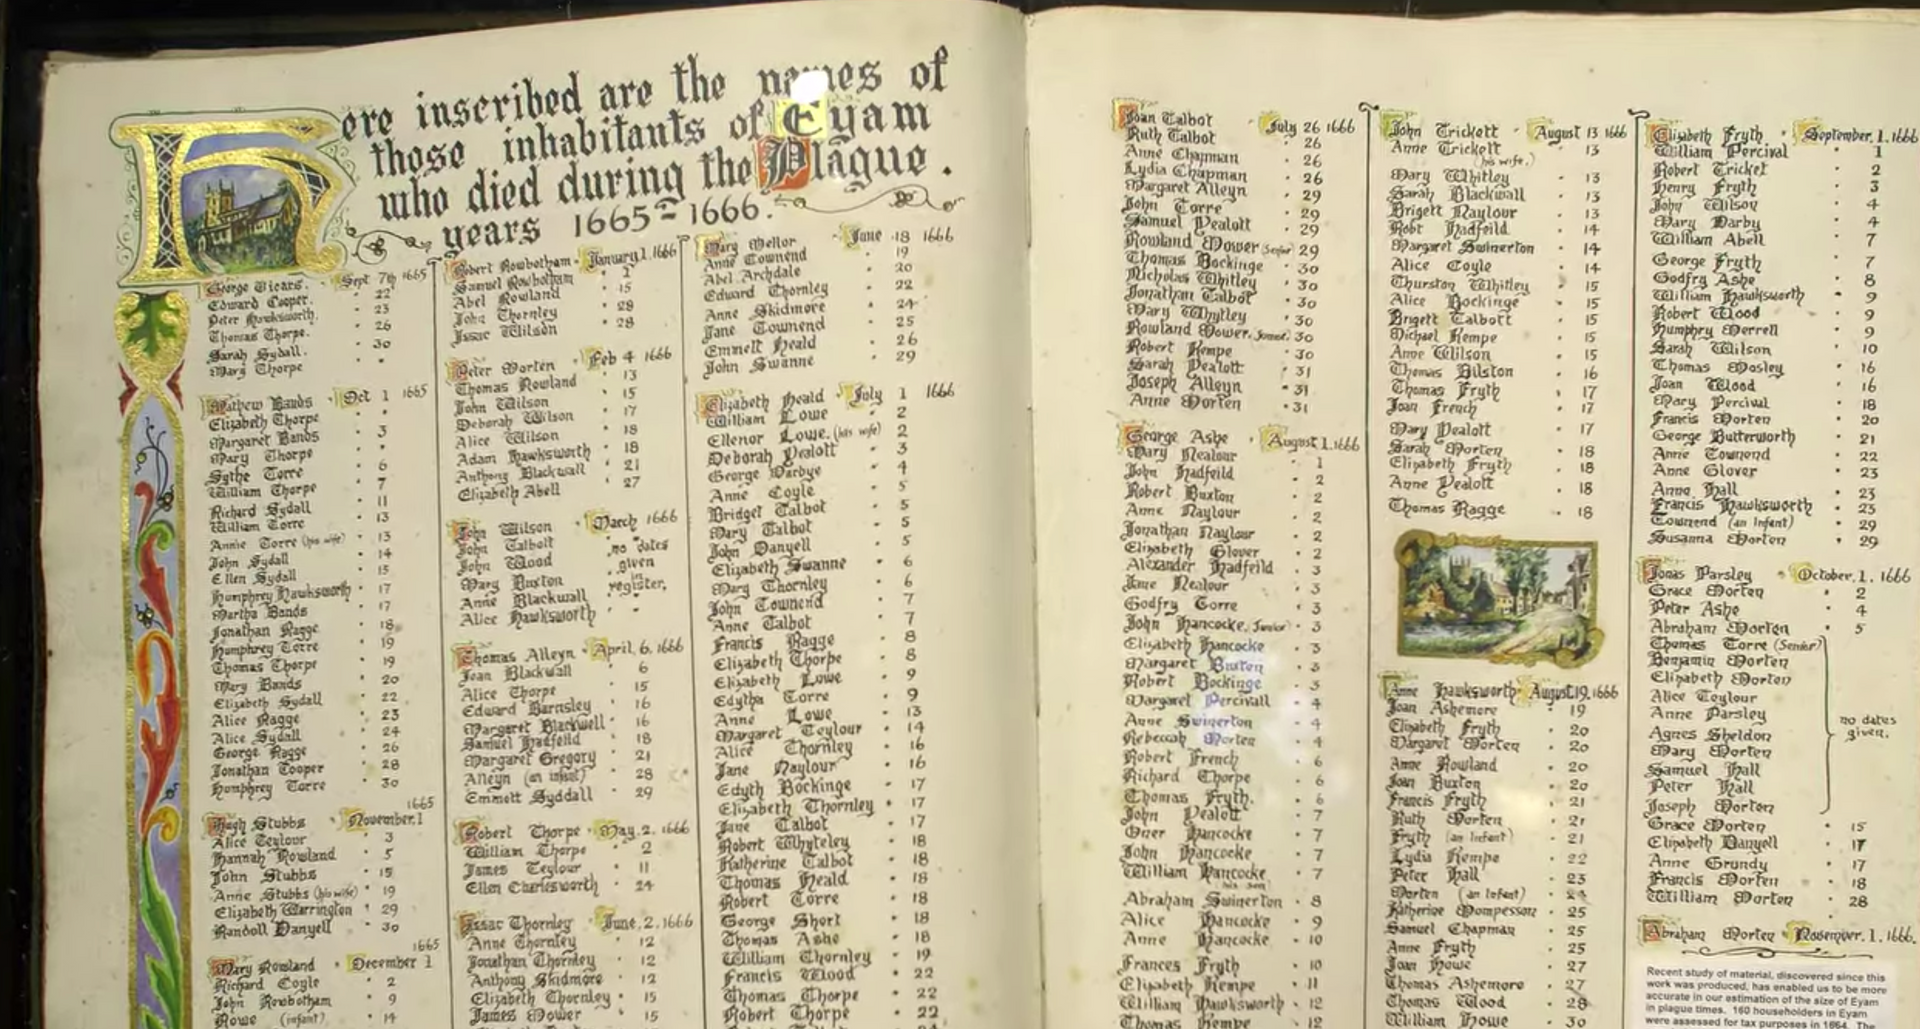 Here inscribed are the names of
those inhabitants of Eyam
who died during the Plague.
years 1665-1666.
George Vicars. Sept 7th 1665
Edward Cooper. 22
Peter Hawksworth. 23
Thomas Thorpe. 26
Sarah Sydall. 30
Mary Thorpe "
Mathew Bands Oct 1 1665
Elizabeth Thorpe "
Margaret Bands 3
Mary Thorpe "
Sythe Torre 6
William Thorpe 7
Richard Sydall 11
William Torre 13
Annie Torre (his wife) 13
John Sydall 14
Ellen Sydall 15
Humphrey Hawksworth 17
Martha Bands 17
Jonathan Ragge 18
Humphrey Torre 19
Thomas Thorpe 19
Mary Bands 20
Elizabeth Sydall 22
Alice Ragge 23
Alice Sydall 24
George Ragge 26
Jonathan Cooper 28
Humphrey Torre 30
1665
Hugh Stubbs November 1
Alice Teylour 3
Hannah Rowland 5
John Stubbs 15
Anne Stubbs (his wife) 19
Elizabeth Warrington 29
Randoll Danyell 30
1665
Mary Rowland December 1
Richard Coyle 2
John Rowbotham 9
Rowe (infant) 14
Robert Rowbotham January 1. 1666
Samuel Rowbotham 1
Abel Rowland 15
John Thornley 28
Issac Wilson 28
Peter Morten Feb 4 1666
Thomas Rowland 13
John Wilson 15
Deborah Wilson 17
Alice Wilson 18
Adam Hawksworth 18
Anthony Blackwall 21
Elizabeth Abell 27
John Wilson March 1666
John Talbott no dates
John Wood given
Mary Buxton in
Anne Blackwall register.
Alice Hawksworth "
Thomas Alleyn April. 6. 1666
Joan Blackwall 6
Alice Thorpe 15
Edward Barnsley 16
Margaret Blackwell 16
Samuel Hadfeild 18
Margaret Gregory 21
Alleyn (an infant) 28
Emmett Syddall 29
Robert Thorpe May. 2. 1666
William Thorpe 2
James Teylour 11
Ellen Charlesworth 24
Issac Thornley June. 2. 1666
Anne Thornley 12
Jonathan Thornley 12
Anthony Skidmore 12
Elizabeth Thornley 15
James Mower 15
Mary Mellor June 18 1666
Anne Townend 19
Abel Archdale 20
Edward Thornley 22
Anne Skidmore 24
Jane Townend 25
Emmett Heald 26
John Swanne 29
Elizabeth Heald July 1 1666
William Lowe 2
Ellenor Lowe. (his wife) 2
Deborah Pealott 3
George Darbye 4
Anne Coyle 5
Bridget Talbot 5
Mary Talbot 5
John Danyell 5
Elizabeth Swanne 6
Mary Thornley 6
John Townend 7
Anne Talbot 7
Francis Ragge 8
Elizabeth Thorpe 8
Elizabeth Lowe 9
Edytha Torre 9
Anne Lowe 13
Margaret Teylour 14
Alice Thornley 16
Jane Naylour 16
Edyth Bockinge 17
Elizabeth Thornley 17
Jane Talbot 17
Robert Whyteley 18
Katherine Talbot 18
Thomas Heald 18
Robert Torre 18
George Short 18
Thomas Ashe 18
William Thornley 19
Francis Wood 22
Thomas Thorpe 22
Robert Thorpe 22
Joan Talbot July 26 1666
Ruth Talbot 26
Anne Chapman 26
Lydia Chapman 26
Margaret Alleyn 29
John Torre 29
Samuel Pealott 29
Rowland Mower (Senior) 29
Thomas Bockinge 30
Nicholas Whitley 30
Jonathan Talbot 30
Mary Whytley 30
Rowland Mower. (Junior) 30
Robert Kempe 30
Sarah Pealott 31
Joseph Alleyn 31
Anne Morten 31
George Ashe August 1. 1666
Mary Nealour 1
John Hadfeild 2
Robert Buxton 2
Anne Naylour 2
Jonathan Naylour 2
Elizabeth Glover 2
Alexander Hadfeild 3
Jane Nealour 3
Godfry Torre 3
John Hancocke. (Junior) 3
Elizabeth Hancocke 3
Margaret Buxten 3
Robert Bockinge 3
Margaret Percivall 4
Anne Swinerton 4
Rebeccah Morten 4
Robert French 6
Richard Thorpe 6
Thomas Fryth. 6
John Pealott 7
Oner Hancocke 7
John Hancocke 7
William Hancocke 7
his son
Abraham Swinerton 8
Alice Hancocke 9
Anne Hancocke 10
Frances Fryth 10
Elizabeth Kempe 11
William Hawksworth 12
Thomas Kempe 12
John Trickett August 13 1666
Anne Trickett 13
(his wife.)
Mary Whitley 13
Sarah Blackwall 13
Brigett Naylour 13
Robt Hadfeild 14
Margaret Swinerton 14
Alice Coyle 14
Thurston Whitley 15
Alice Bockinge 15
Brigett Talbott 15
Michael Kempe 15
Anne Wilson 15
Thomas Bilston 16
Thomas Fryth 17
Joan French 17
Mary Pealott 17
Sarah Morten 18
Elizabeth Fryth 18
Anne Pealott 18
Thomas Ragge 18
Anne Hawksworth August 19. 1666
Joan Ashemore 19
Elizabeth Fryth 20
Margaret Morten 20
Anne Rowland 20
Joan Buxton 20
Francis Fryth 21
Ruth Morten 21
Fryth (an Infant) 21
Lydia Kempe 22
Peter Hall 23
Morten (an Infant) 24
Katherine Mompesson 25
Samuel Chapman 25
Anne Fryth 25
Joan Howe 27
Thomas Ashemore 27
Thomas Wood 28
William Howe 30
Elizabeth Fryth September. 1. 1666
William Percival 1
Robert Tricket 2
Henry Fryth 3
John Wilson 4
Mary Darby 4
William Abell 7
George Fryth 7
Godfry Ashe 8
William Hawksworth 9
Robert Wood 9
Humphrey Merrell 9
Sarah Wilson 10
Thomas Mosley 16
Joan Wood 16
Mary Percival 18
Francis Morten 20
George Butterworth 21
Anne Townend 22
Anne Glover 23
Anne Hall 23
Francis Hawksworth 23
Townend (an Infant) 29
Susanna Morten 29
Jonas Parsley October. 1. 1666
Grace Morten 2
Peter Ashe 4
Abraham Morten 5
Thomas Torre (Senior)
Benjamin Morten
Elizabeth Morten
Alice Teylour
Anne Parsley no dates
Agnes Sheldon given.
Mary Morten
Samuel Hall
Peter Hall
Joseph Morten
Grace Morten 15
Elizabeth Danyell 17
Anne Grundy 17
Francis Morten 18
William Morten 28
Abraham Morten November. 1. 1666.
Recent study of material, discovered since this
work was produced, has enabled us to be more
accurate in our estimation of the size of Eyam
in plague times. 160 householders in Eyam
were assessed for tax purposes in 1664. The